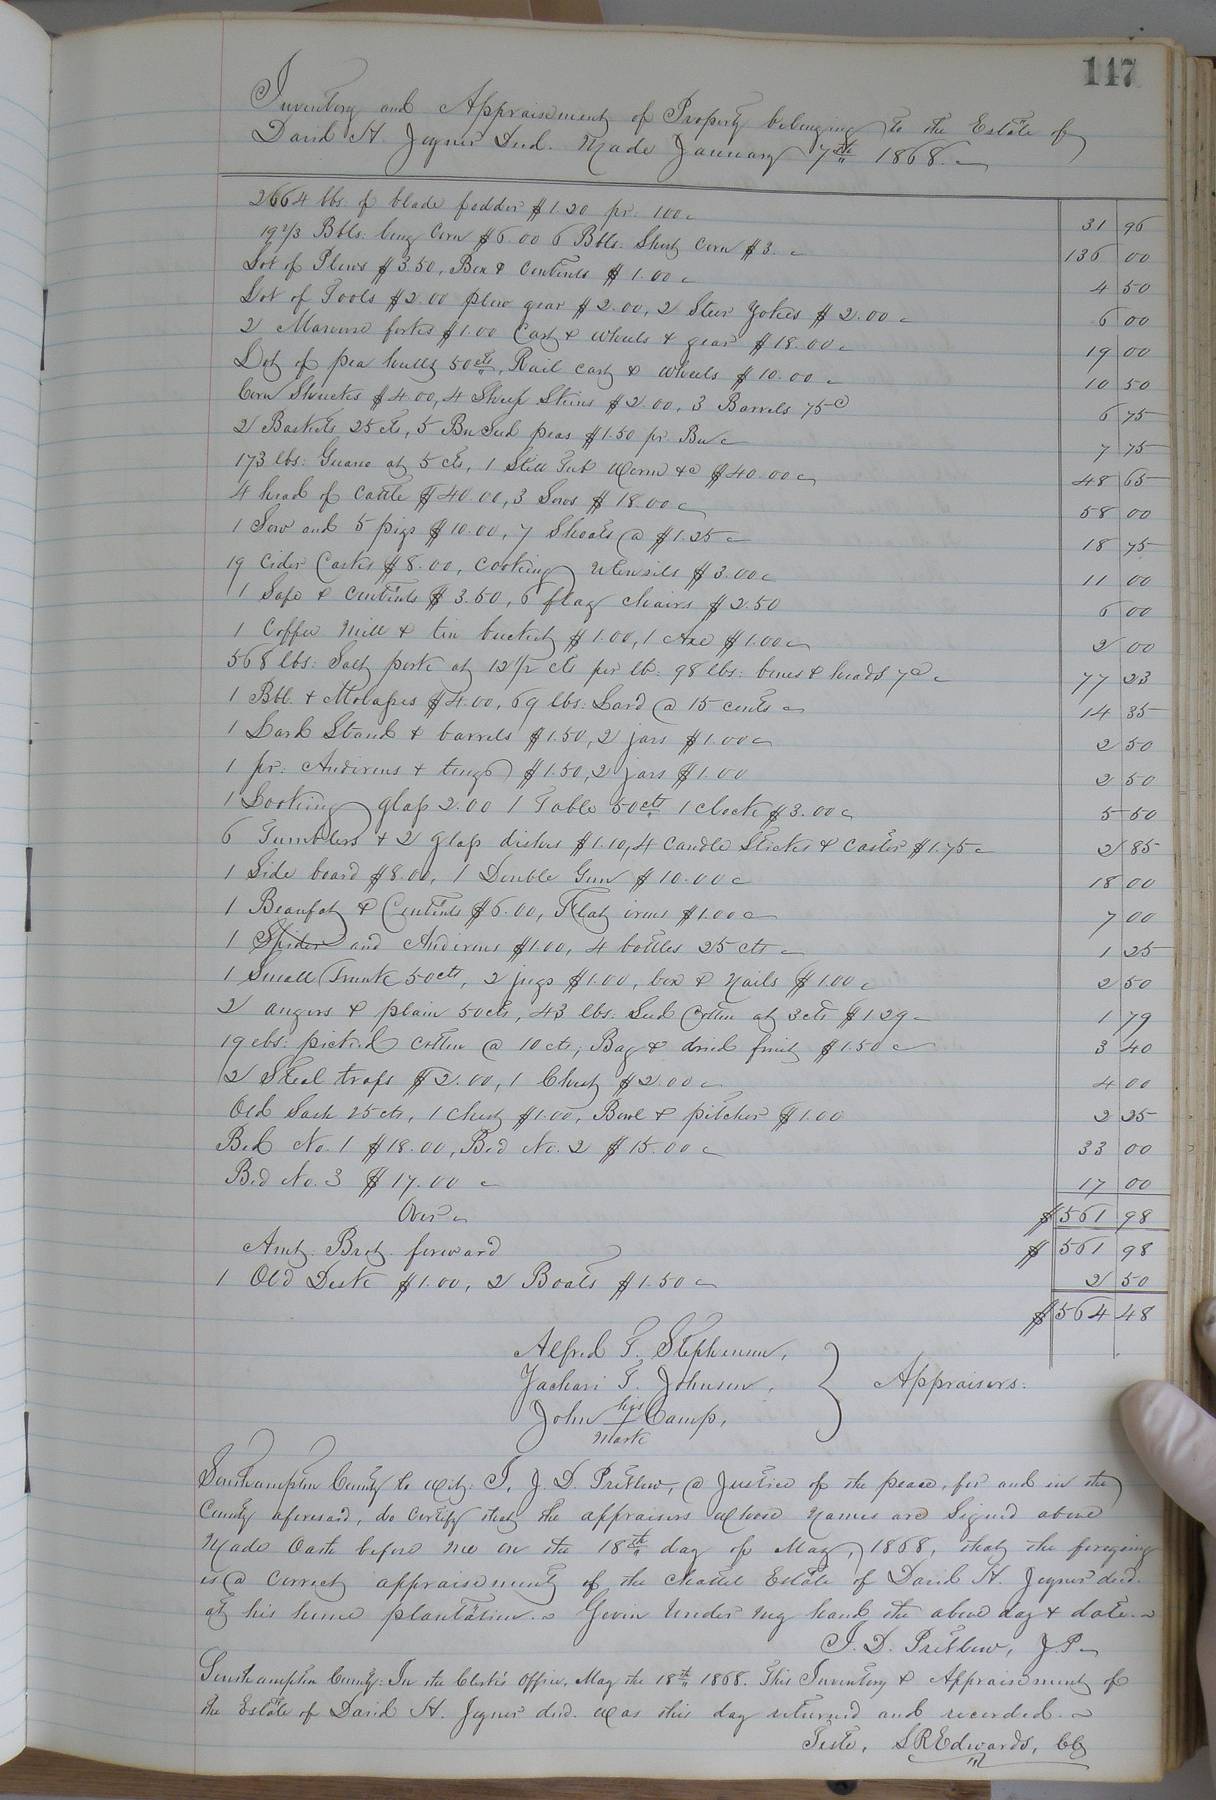 147
Inventory and Appraisement of Property belonging to the Estate of
David H. Joyner Decd. Made January 7th 1868.
2664 lbs. of blade fodder $1.20 pr. 100 31 96
19 2/3 Bbls. long Corn $6.00 6 Bbls. Short Corn $3. 136 00
Lot of Plows $3.50, Box & Contents $1.00 4 50
Lot of Tools $2.00 plow gear $2.00, 2 Steer Yokes $2.00 6 00
2 Manure forks $1.00 Cart & Wheels & gear $18.00 19 00
Lot of pea hulls 50cts, Rail cart & Wheels $10.00 10 50
Corn Shucks $4.00, 4 Sheep Skins $2.00, 3 Barrels 75c 6 75
2 Baskets 25 cts, 5 Bu Seed peas $1.50 pr. Bu 7 75
173 lbs: Guano at 5 cts, 1 Still Tub Worm &c $40.00 48 65
4 head of cattle $40.00, 3 Sows $18.00 58 00
1 Sow and 5 pigs $10.00, 7 Shoats @ $1.25 18 75
19 Cider Casks $8.00, Cooking Utensils $3.00 11 00
1 Safe & Contents $3.50, 6 flag chairs $2.50 6 00
1 Coffee Mill & tin bucket $1.00, 1 Axe $1.00 2 00
568 lbs: Salt pork at 12 1/2 cts per lb. 98 lbs: bones & heads 7c 77 23
1 Bbl. & Molasses $4.00, 69 lbs: Lard @ 15 cents 14 35
1 Lard Stand & barrels $1.50, 2 jars $1.00 2 50
1 pr. Andirons & tongs $1.50, 2 jars $1.00 2 50
1 Looking glass 2.00 1 Table 50cts 1 clock $3.00 5 50
6 Tumblers & 2 glass dishes $1.10, 4 Candle Sticks & Caster $1.75 2 85
1 Side board $8.00, 1 Double Gun $10.00 18 00
1 Beaufat & Contents $6.00, Flat irons $1.00 7 00
1 Spider and Andirons $1.00, 4 bottles 25 cts 1 25
1 Small Trunk 50cts, 2 jugs $1.00, box & Nails $1.00 2 50
2 augers & plain 50cts, 43 lbs. Seed Cotton at 3cts $1.29 1 79
19 lbs: picked Cotton @ 10 cts, Bag & dried fruit $1.50 3 40
2 Steal traps $2.00, 1 Chest $2.00 4 00
Old Sack 25 cts, 1 Chest $1.00, Bowl & pitcher $1.00 2 25
Bed No. 1 $18.00, Bed No. 2 $15.00 33 00
Bed No. 3 $17.00 17 00
Over $561 98
Amt. Brot. forward $561 98
1 Old Desk $1.00, 2 Boats $1.50 2 50
$564 48
Alfred T. Stephenson,
Zachari T. Johnson, } Appraisers.
his
John Camp,
mark
Southampton County to wit: I, J. D. Pretlow, a Justice of the peace, for and in the
County aforesaid, do certify that the appraisers whose Names are Signed above
Made Oath before me on the 18th day of May, 1868, that the foregoing
is a Correct appraisement of the chattel Estate of David H. Joyner decd.
at his home plantation. Given Under My hand the above day & date.
J. D. Pretlow, J.P.
Southampton County: In the Clerk's Office, May the 18th 1868. This Inventory & Appraisement of
the Estate of David H. Joyner decd. was this day returned and recorded.
Teste, L R Edwards, Clk